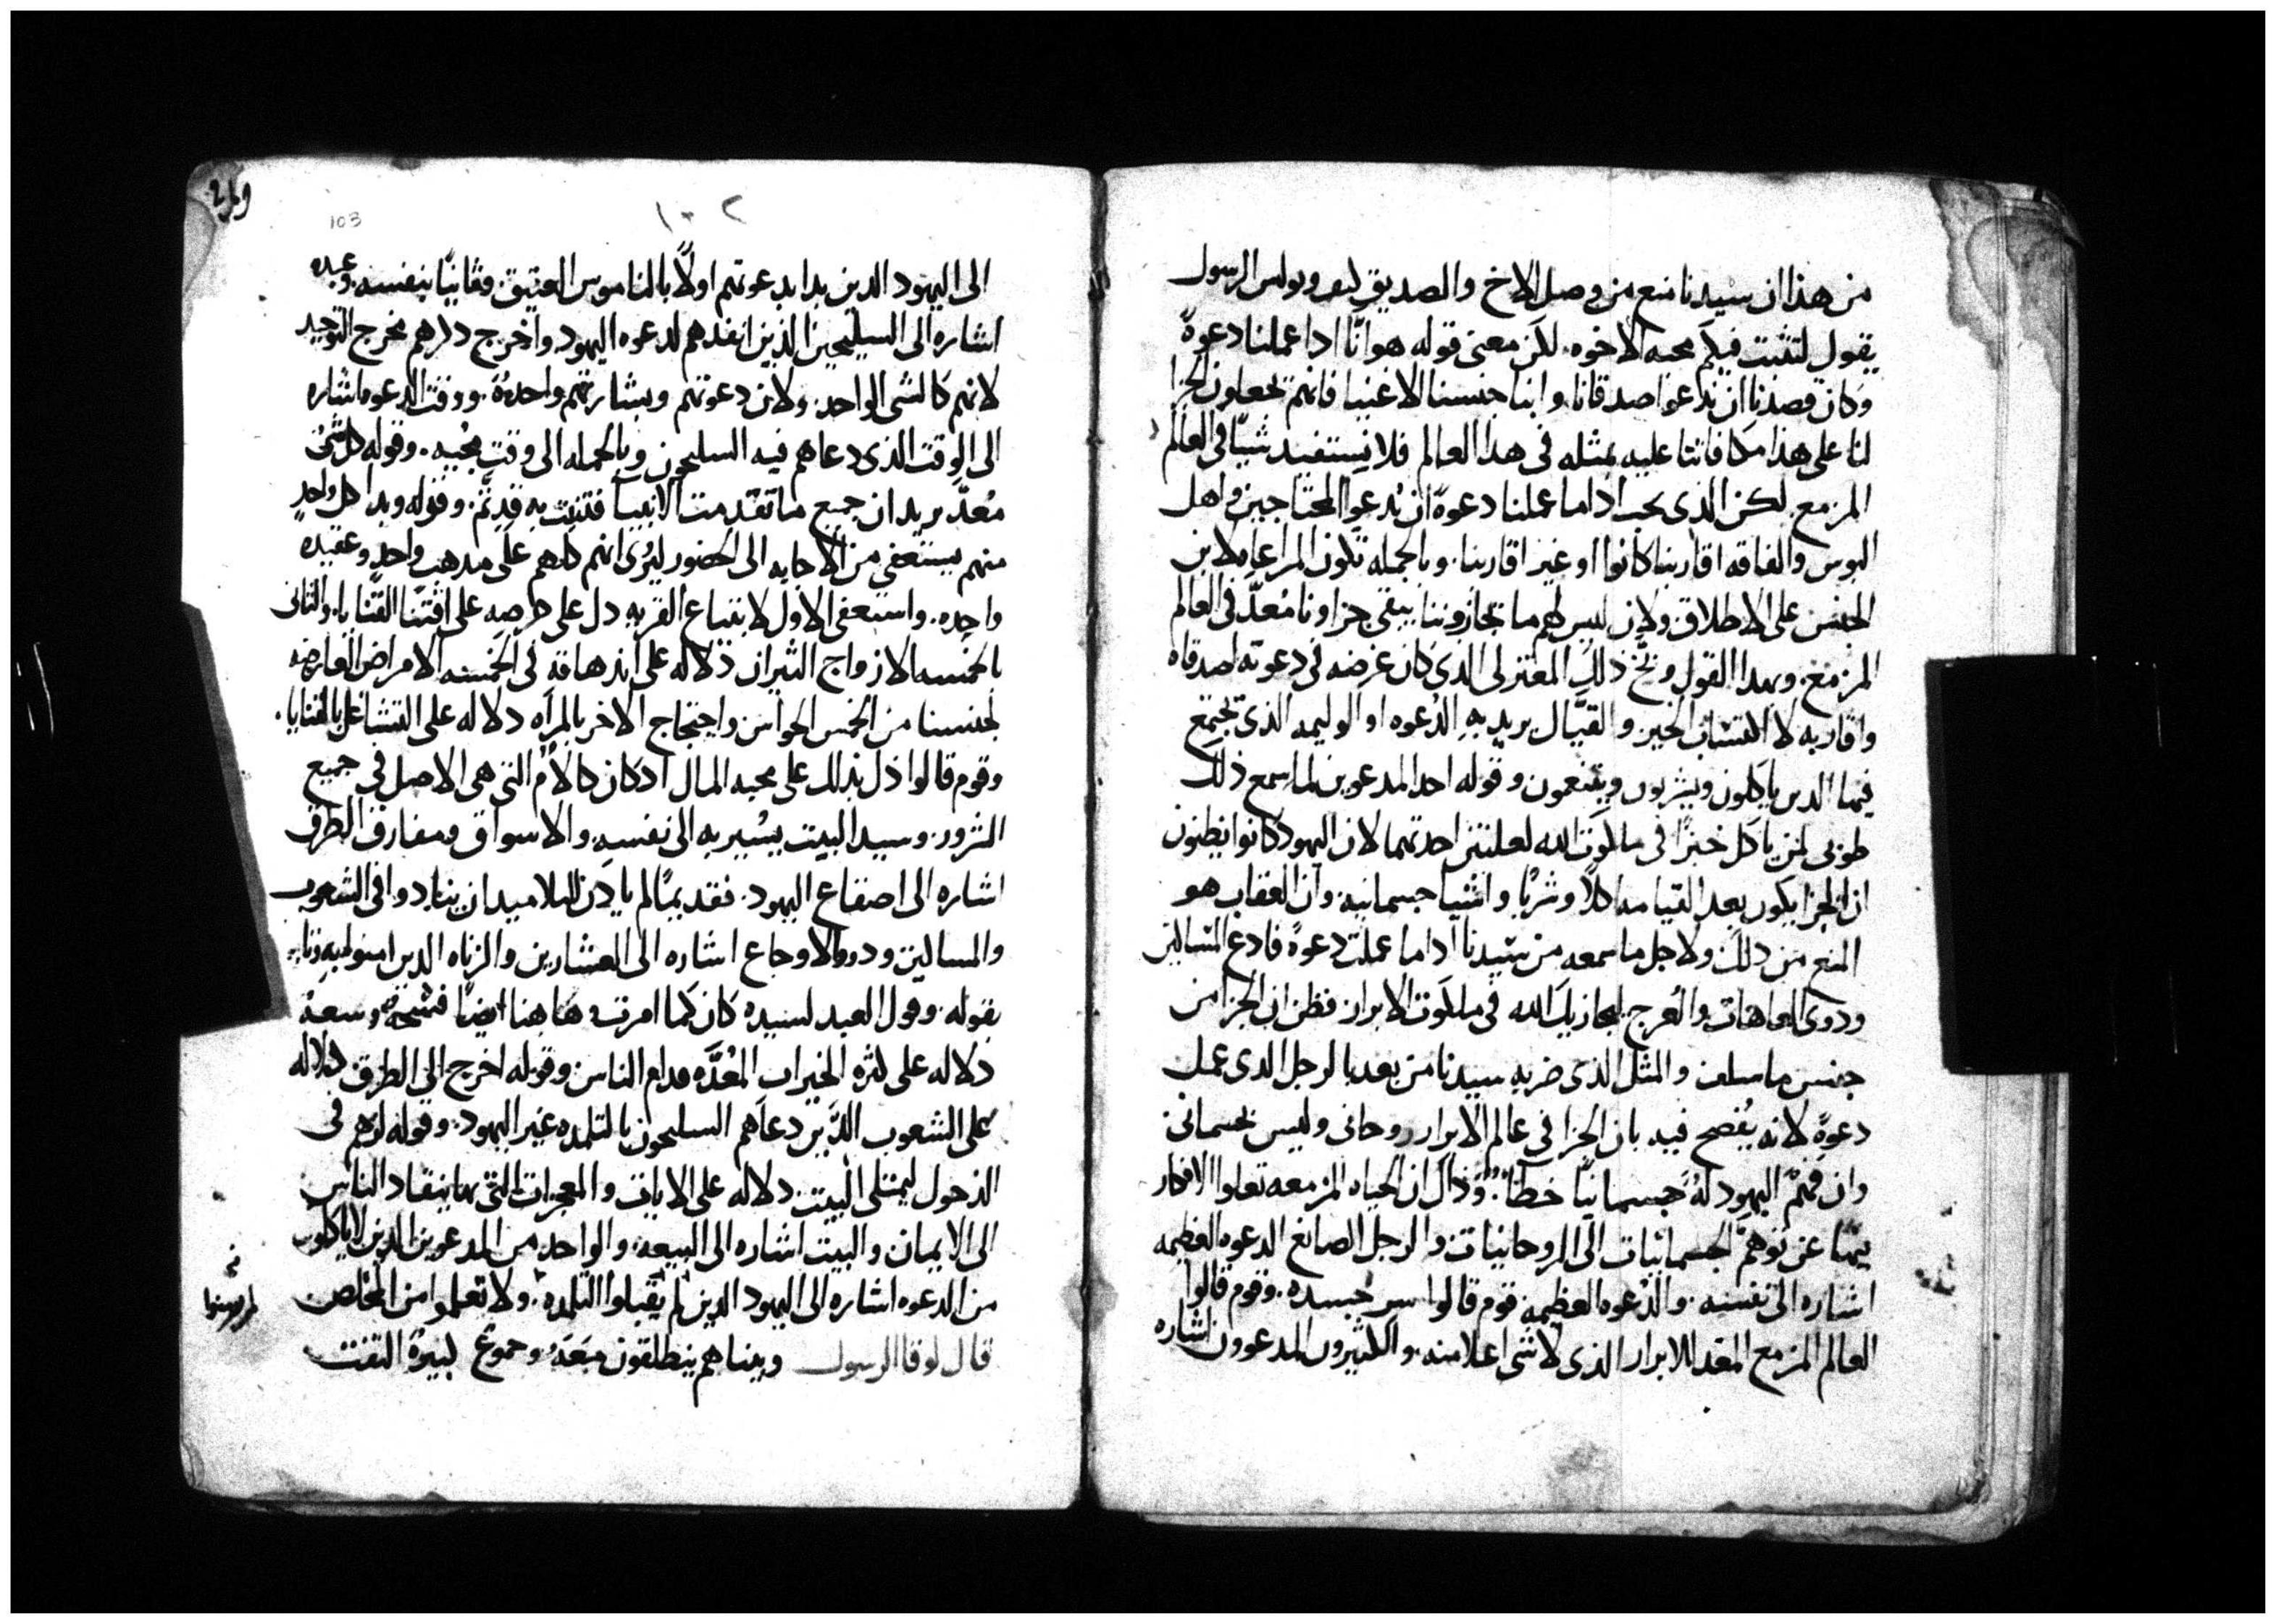 من هذا ان سيدنا منع من وصل الاخ والصديق كيف وبولس الرسول
يقول لتثبت فيكم محبه الاخوه. لكن معنى قوله هو انَّا اذا عملنا دعوةً
وكان قصدنا ان ندعوا اصدقانا وابنا جنسنا الاغنيا فانهم يجعلون الجزا
لنا على هذا مكافاتنا عليه بمثله في هذا العالم فلا نستفيد شيًا في العالم
المزمع. لكن الذى يجب اذا ما عملنا دعوةً ان ندعوا المحتاجين واهل
البوس والفاقه اقاربنا كانوا او غير اقاربنا. وبالجمله تكون المراعاه لابن
الجنس على الاطلاق ولان ليس لهم ما يجازوننا يبقى جزاونا مُعدّ في العالم
المزمع. وبهذا القول وبّخ ذلك المعتزلى الذى كان غرضه في دعوته اصدقاه
واقاربه لا اكتساب الخير والقيّال يريد به الدعوه او الوليمه الذى تجتمع
فيها الدين ياكلون ويشربون ويتنعمون وقوله احد المدعوين لما سمع ذلك
طوبى لمن ياكل خبزًا في ملكوت الله لعلتين احدتهما لان اليهود كانوا يظنون
ان الجزا يكون بعد القيامه اكلًا وشربًا واشيا جسمانيه وان العقاب هو
المنع من ذلك ولاجل ما سمعه من سيدنا اذا ما عملت دعوةً فادع المساكين
وذوى العاهات والعرج ليجازيك الله في ملكوت الابرار فظن ان الجزا من
جنس ما سلف والمثل الذى ضربه سيدنا من بعد بالرجل الدى عمل
دعوةً لانه يُفصح فيه بان الجزا في عالم الابرار روحانى وليس بجسمانى
وان فهم اليهود لهُ جسمانيًّا خطأ. وذاك ان الحياه المزمعه تعلوا الافكار
فيها عن توهم الجسمانيات الى الروحانيات والرجل الصانع الدعوه العظيمه
اشاره الى نفسه. والدعوه العظيمه قوم قالوا سر جسده. وقوم قالوا
العالم المزمع المعد للابرار الذى لا شى اعلا منه. والكثيرون المدعوون اشاره
103
١٠٢
الى اليهود الدين بدا بدعوتهم اولًا بالناموس العتيق. وثانيًا بنفسه. وعبده
اشاره الى السليحين الذين انفدهم لدعوه اليهود واخرج ذكرهم مخرج التوحيد
لانهم كالشى الواحد. ولان دعوتهم وبشارتهم واحدةً. ووقت الدعوه اشاره
الى الوقت الذى دعاهم فيه السليحون وبالجمله الى وقت مجيه. وقوله كل شى
مُعدٌّ يريد ان جميع ما تقدمت الانبيا فتنبت به قد تم. وقوله وبدا كل واحدٍ
منهم يستعفى من الاجابه الى الحضور ليُرى انهم كلهم على مدهب واحدٍ وعقيده
واحده. واستعفى الاول لابتياع القريه دل على حرصه على اقتنا القنايا. والثانى
بالخمسه الازواج الثيران دلاله على اندهاقه في الخمسه الامراض العارضه
لجنسنا من الخمس الحواس واحتجاج الاخر بالمراه دلاله على التشاغل بالقنايا.
وقوم قالوا دل بذلك على محبه المال اد كان كالام التى هي الاصل في جميع
الشرور. وسيد البيت يشير به الى نفسه. والاسواق ومفارق الطرق
اشاره الى اصقاع اليهود. فقديمًا لم يادن للتلاميد ان ينادوا في الشعوب
والمساكين ودووالاوجاع اشاره الى العشارين والزناه الدين امنوا به
بقوله. وقول العبد لسيده كان كما امرت وهاهنا ايضًا وسعةً
دلاله على كثره الخيرات المُعدَّه قدام الناس وقوله اخرج الى الطرق دلاله
على الشعوب الذين دعاهم السليحون بالتلمده غير اليهود. وقوله اكرههم في
الدخول ليمتلى البيت دلاله على الايات والمعجزات التى بها ينقاد الناس
الى الايمان والبيت اشاره الى البيعه. والواحد من المدعوين الدين لا ياكلون
من الدعوه اشاره الى اليهود الدين لم يقبلوا التلمده. ولا تعلموا من المخلص
قال لوقا الرسول وبيناهم ينطلقون معَهُ وجموعٌ كبيرة التفت